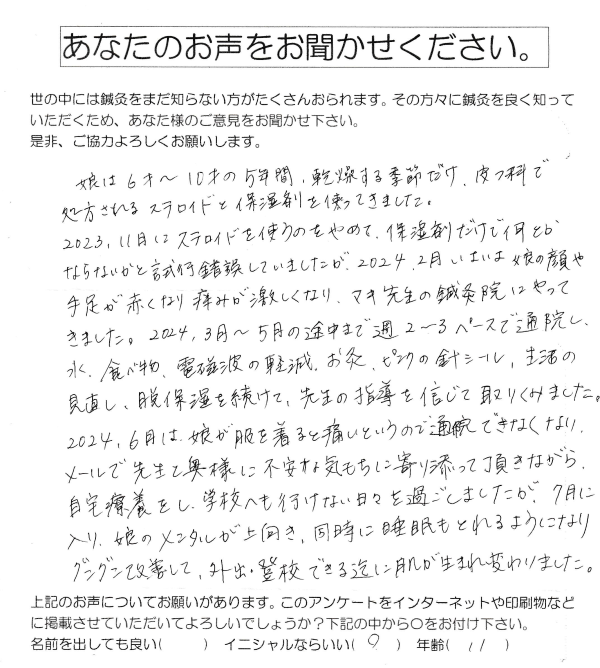 あなたのお声をお聞かせください。
世の中には鍼灸をまだ知らない方がたくさんおられます。その方々に鍼灸を良く知って
いただくため、あなた様のご意見をお聞かせ下さい。
是非、ご協力よろしくお願いします。
娘は6才〜10才の5年間、乾燥する季節だけ、皮フ科で
処方されるステロイドと保湿剤を使ってきました。
2023、11月にステロイドを使うのをやめて、保湿剤だけで何とか
ならないかと試行錯誤していましたが、2024、2月いは娘の顔や
手足が赤くなり痒みが激しくなり、マキ先生の鍼灸院にやって
きました。2024、3月〜5月の途中まで週2〜3ペースで通院し、
水、食べ物、電磁波の軽減、お灸、ピンクの針シール、生活の
見直し、脱保湿を続けて、先生の指導を信じて取りくみました。
2024、6月は、娘が服を着ると痛いというので通院できなくなり、
メールで先生と奥様に不安な気もちに寄り添って頂きながら、
自宅療養をし、学校へも行けない日々を過ごしましたが、7月に
入り、娘のメンタルが上向き、同時に睡眠もとれるようになり
グングン改善して、外出・登校できる迄に肌が生まれ変わりました。
上記のお声についてお願いがあります。このアンケートをインターネットや印刷物など
に掲載させていただいてよろしいでしょうか？下記の中から○をお付け下さい。
名前を出しても良い(　　　) イニシャルならいい( ○ ) 年齢( 11 )